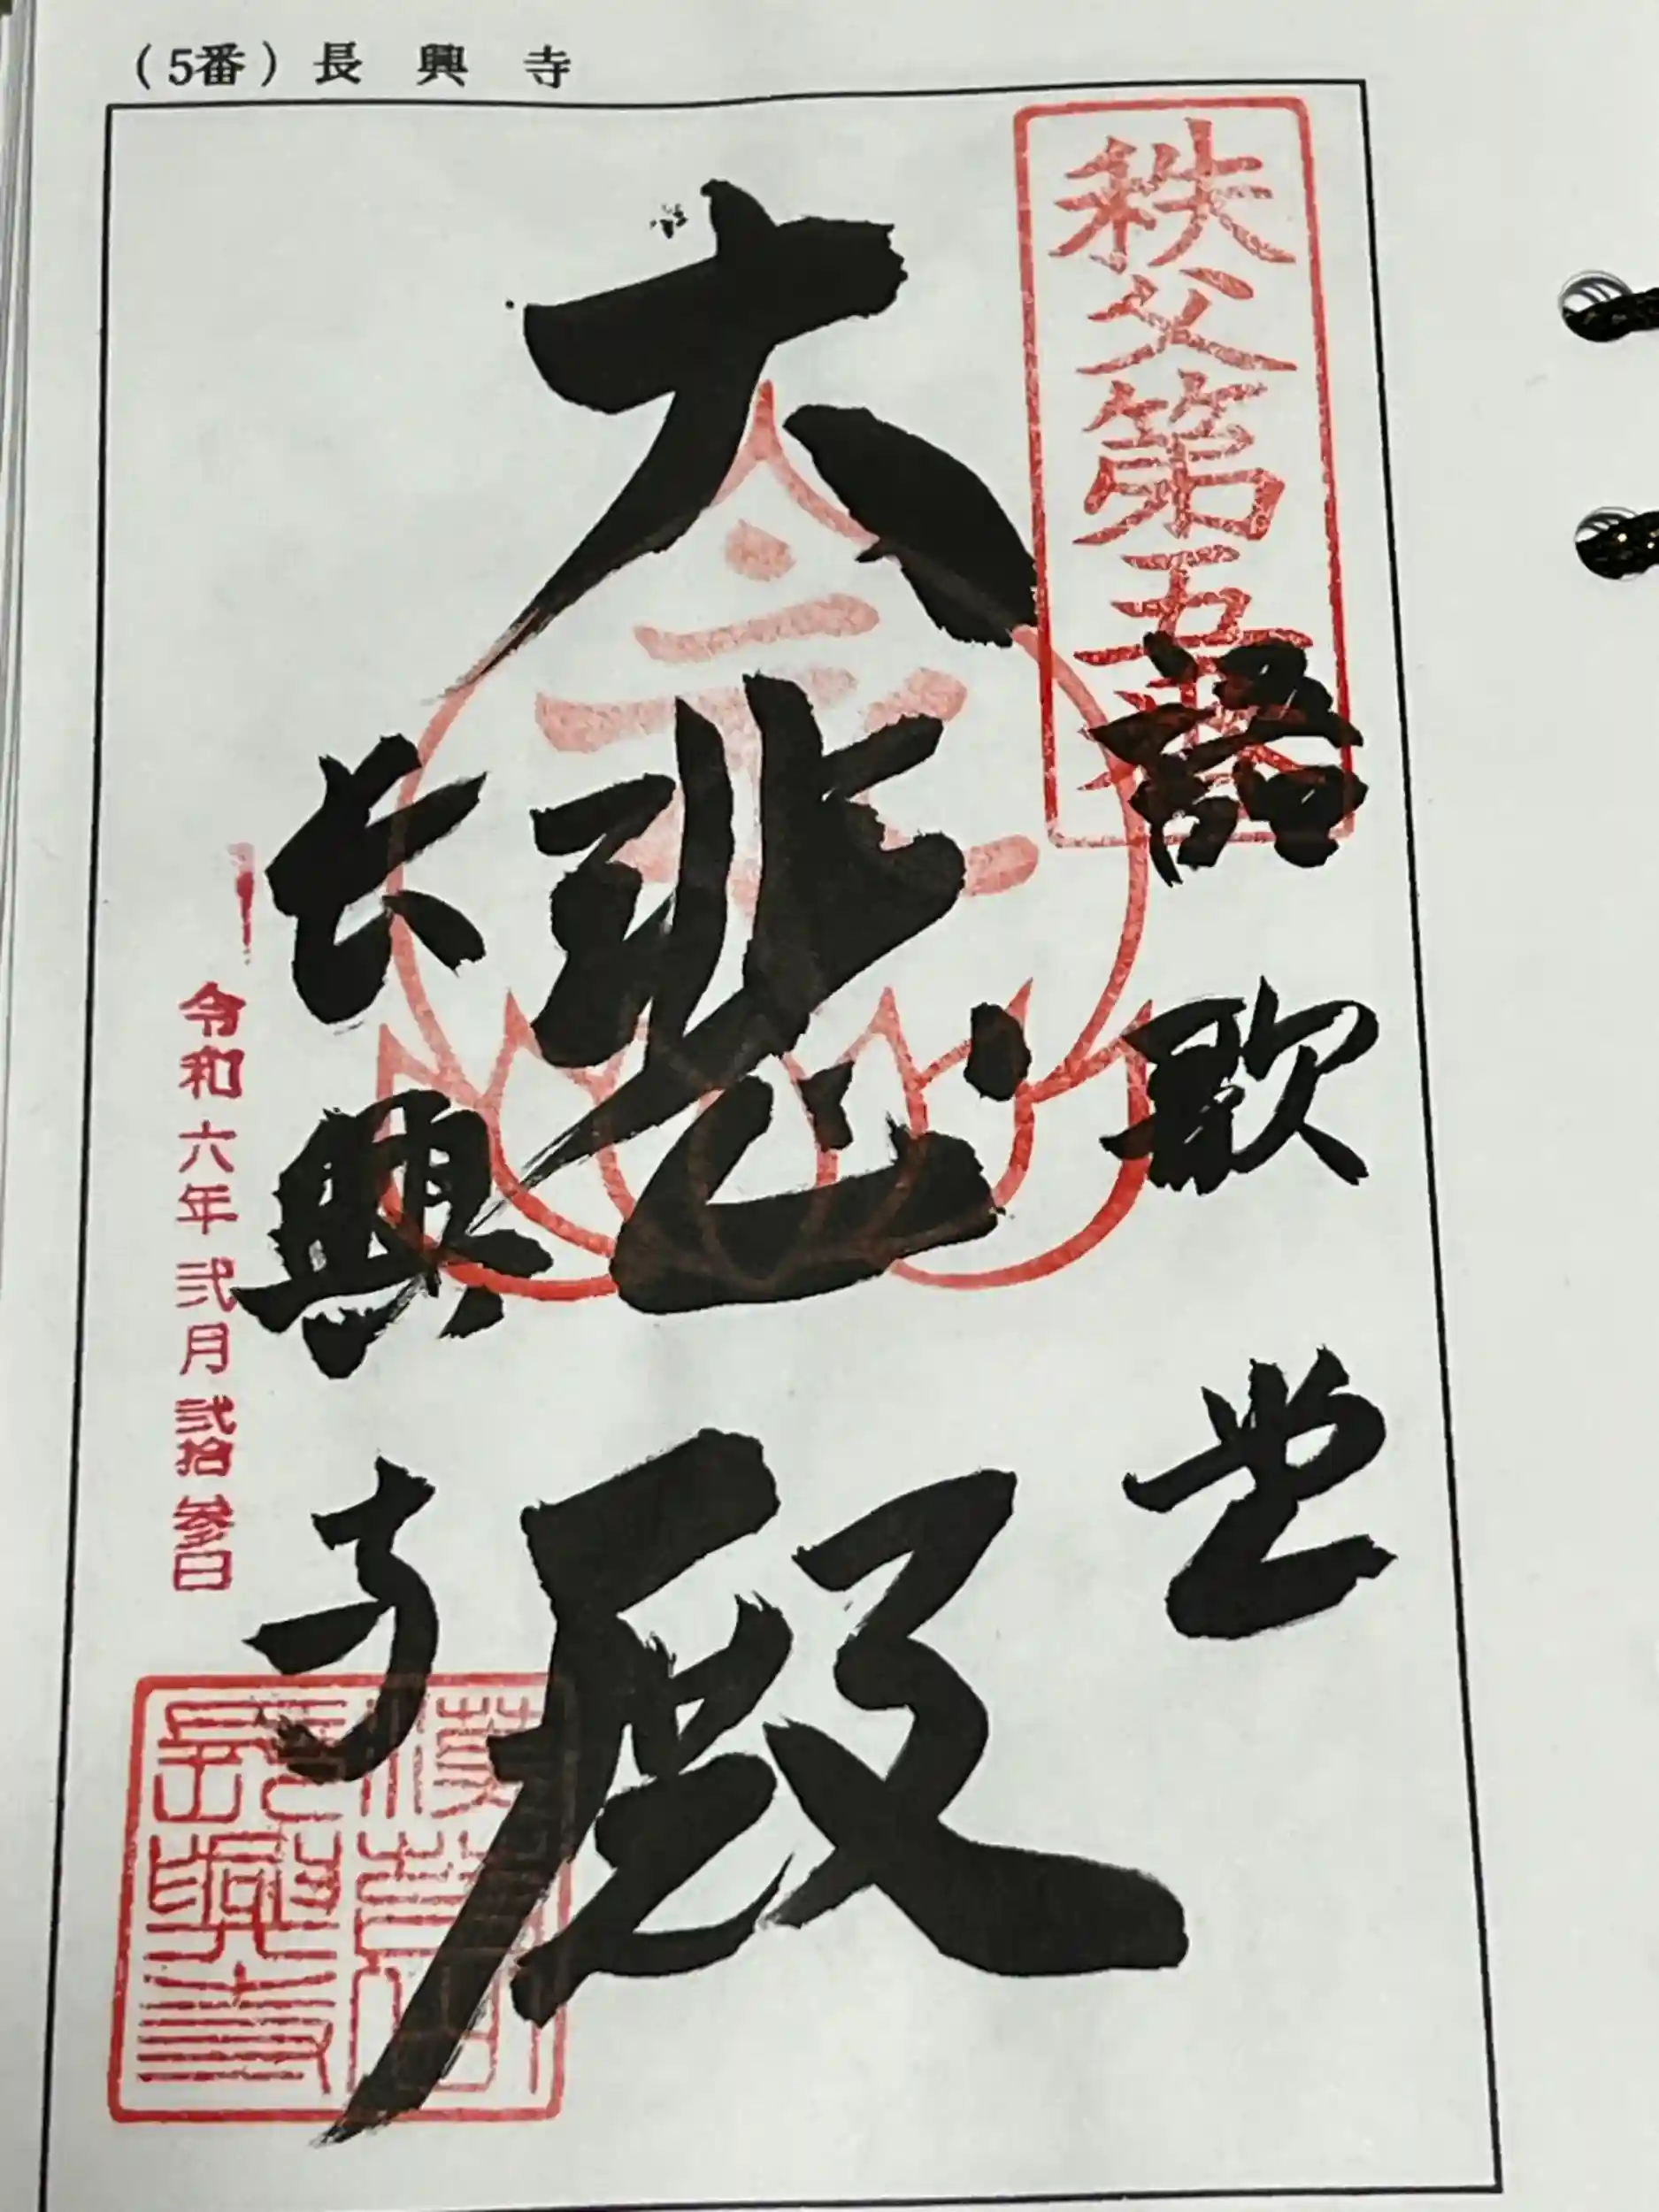 (5番)長興寺
秩父第五番
語歌堂
大悲殿
長興寺
令和六年弐月弐拾参日
長興寺